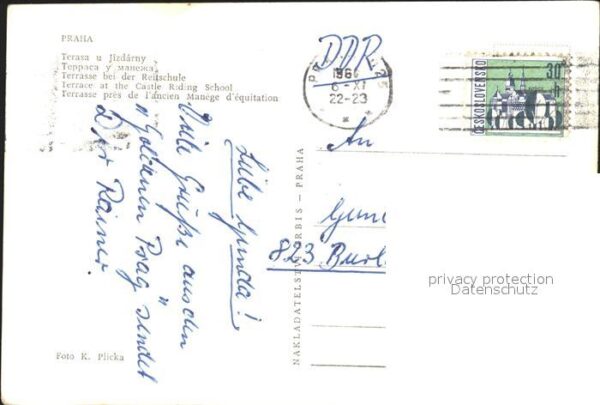 PRAHA
Terasa u Jízdárny
Терраса у манежа
Terrasse bei der Reitschule
Terrace at the Castle Riding School
Terrasse près de l'ancien Manege d'équitation
Liebe Gunda!
Viele Grüße aus dem
"Goldenen Prag" sendet
Dir Rainer.
Foto K. Plicka
NAKLADATELSTVÍ ORBIS — PRAHA
DDR
PRAHA 25
6-XI
22-23
ČESKOSLOVENSKO
30
h
An
823
privacy protection
Datenschutz